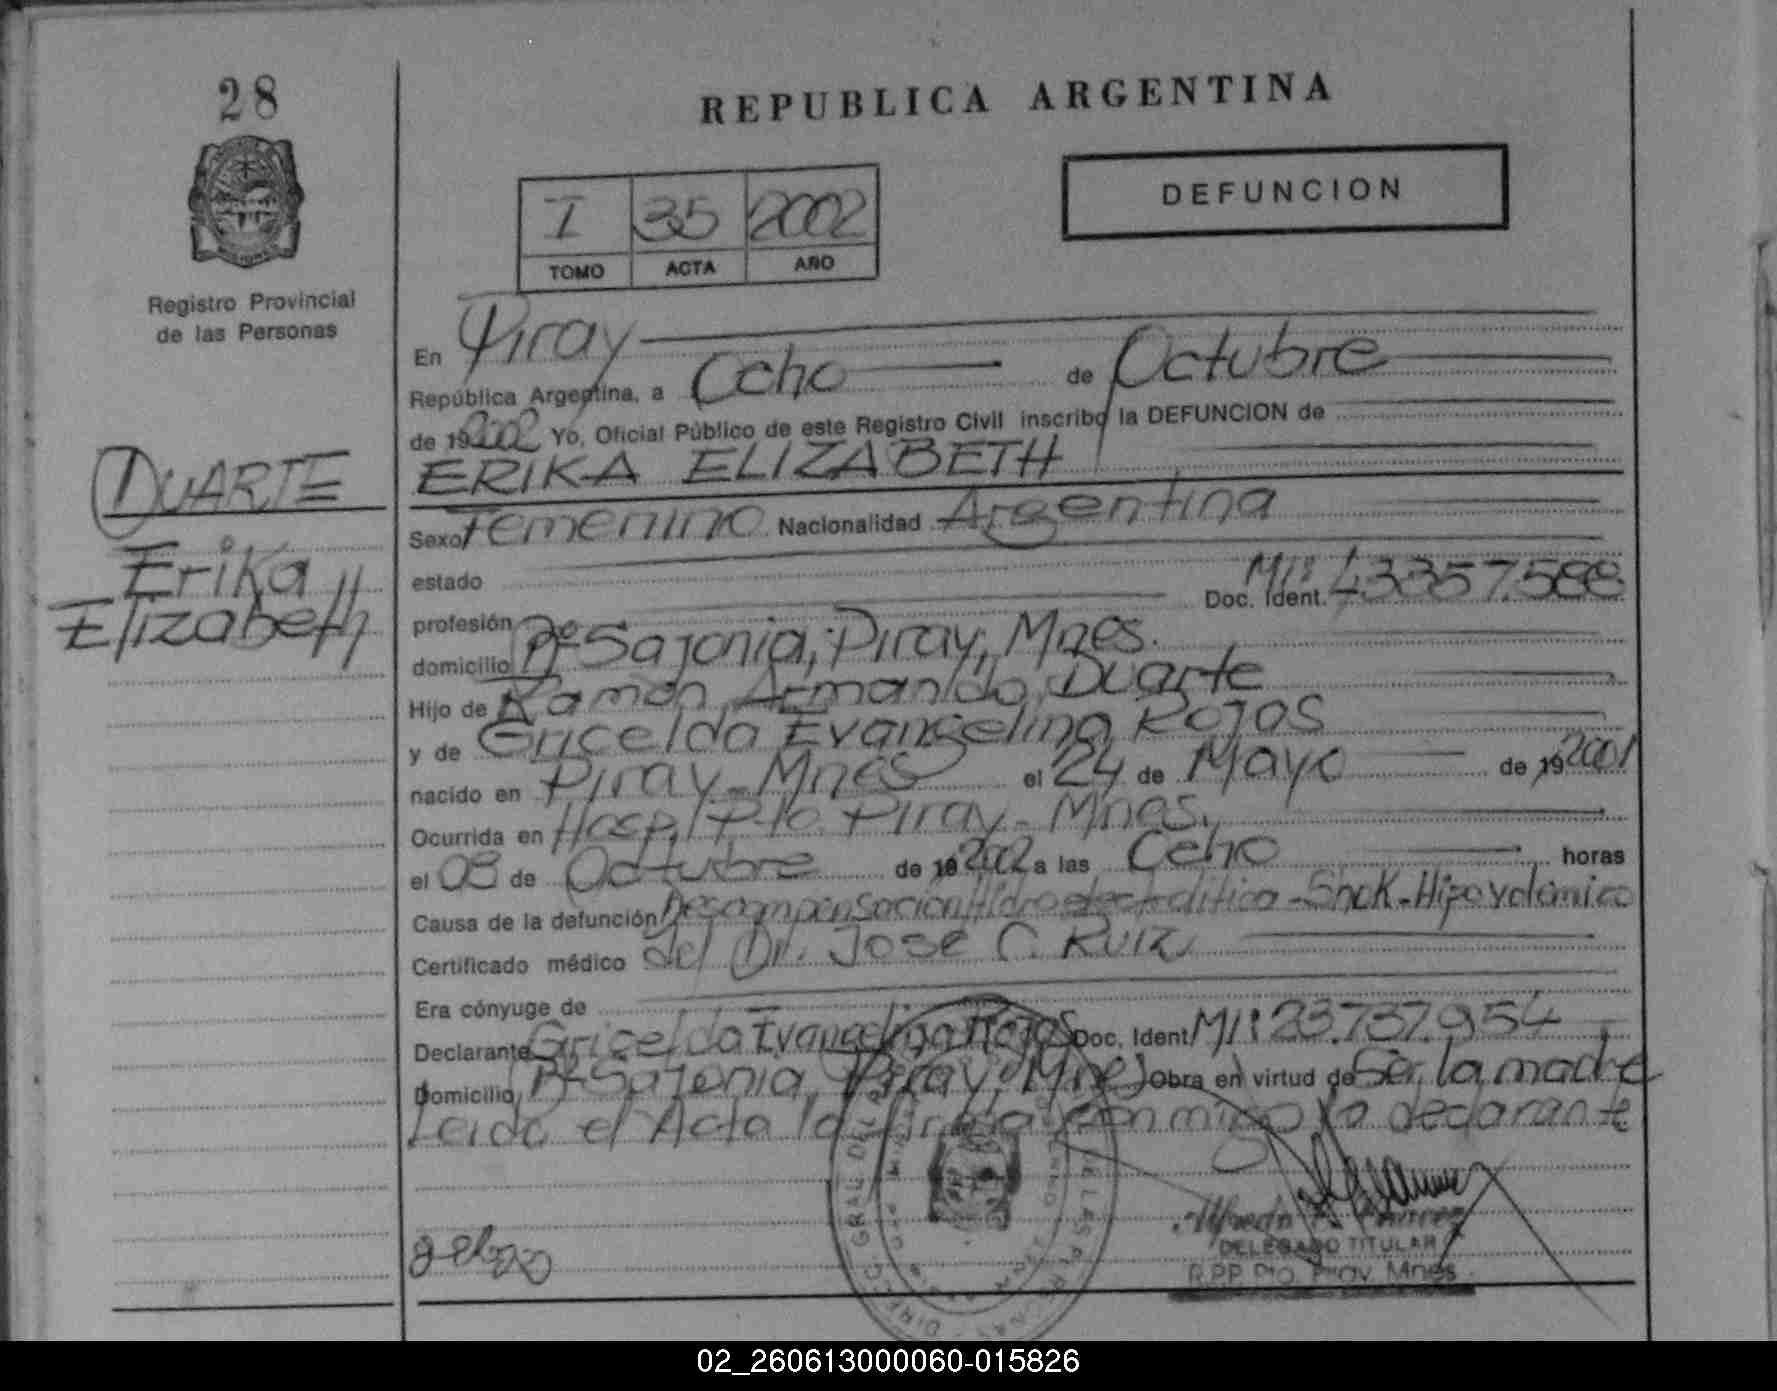 28
REPUBLICA ARGENTINA
DEFUNCION
I 35 2002
TOMO ACTA AÑO
Registro Provincial
de las Personas
DUARTE
Erika
Elizabeth
En Piray
República Argentina, a Ocho de Octubre
de 192002 Yo, Oficial Público de este Registro Civil inscribo la DEFUNCION de
ERIKA ELIZABETH
Sexo Femenino Nacionalidad Argentina
estado
profesión Doc. Ident. M.I: 43357.588
domicilio Pº Sajonia, Piray, Mnes.
Hijo de Ramón Armando Duarte
y de Gricelda Evangelina Rojas
nacido en Piray - Mnes el 24 de Mayo de 192001
Ocurrida en Hosp. Pto. Piray - Mnes.
el 08 de Octubre de 192002 a las Ocho horas
Causa de la defunción Descompensación Hidroelectrolítica - Shok - Hipovolémico
Certificado médico del Dr. José C. Ruiz
Era cónyuge de
Declarante Gricelda Evangelina Rojas Doc. Ident M.I: 23.737.954
Domicilio Pº Sajonia, Piray, Mnes Obra en virtud de Ser la madre
Leida el Acta la firma con migo la declarante
DELEGADO TITULAR
R.P.P. Pto. Piray Mnes.
02_260613000060-015826